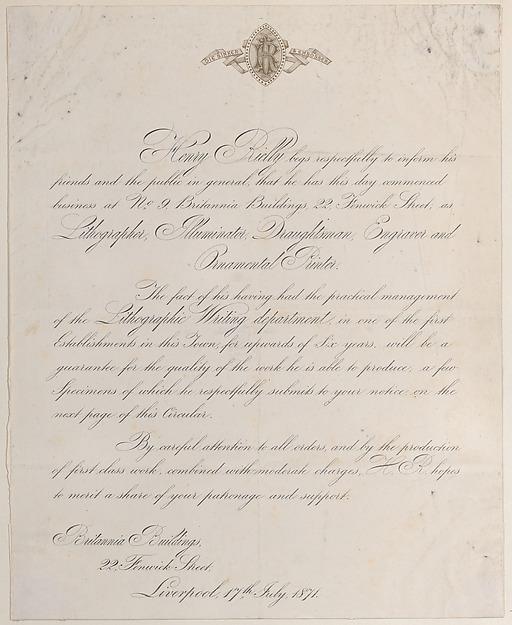 DIE SINKER & EMBOSSER
HR
Henry Reilly begs respectfully to inform his
friends and the public in general, that he has this day commenced
business at No. 9, Britannia Buildings, 22, Fenwick Street, as
Lithographer, Illuminator, Draughtsman, Engraver and
Ornamental Printer.
The fact of his having had the practical management
of the Lithographic Writing department, in one of the first
Establishments in this Town, for upwards of Six years, will be a
guarantee for the quality of the work he is able to produce, a few
Specimens of which he respectfully submits to your notice on the
next page of this Circular.
By careful attention to all orders, and by the production
of first class work, combined with moderate charges, H. R. hopes
to merit a share of your patronage and support.
Britannia Buildings,
22, Fenwick Street.
Liverpool, 17th July, 1871.